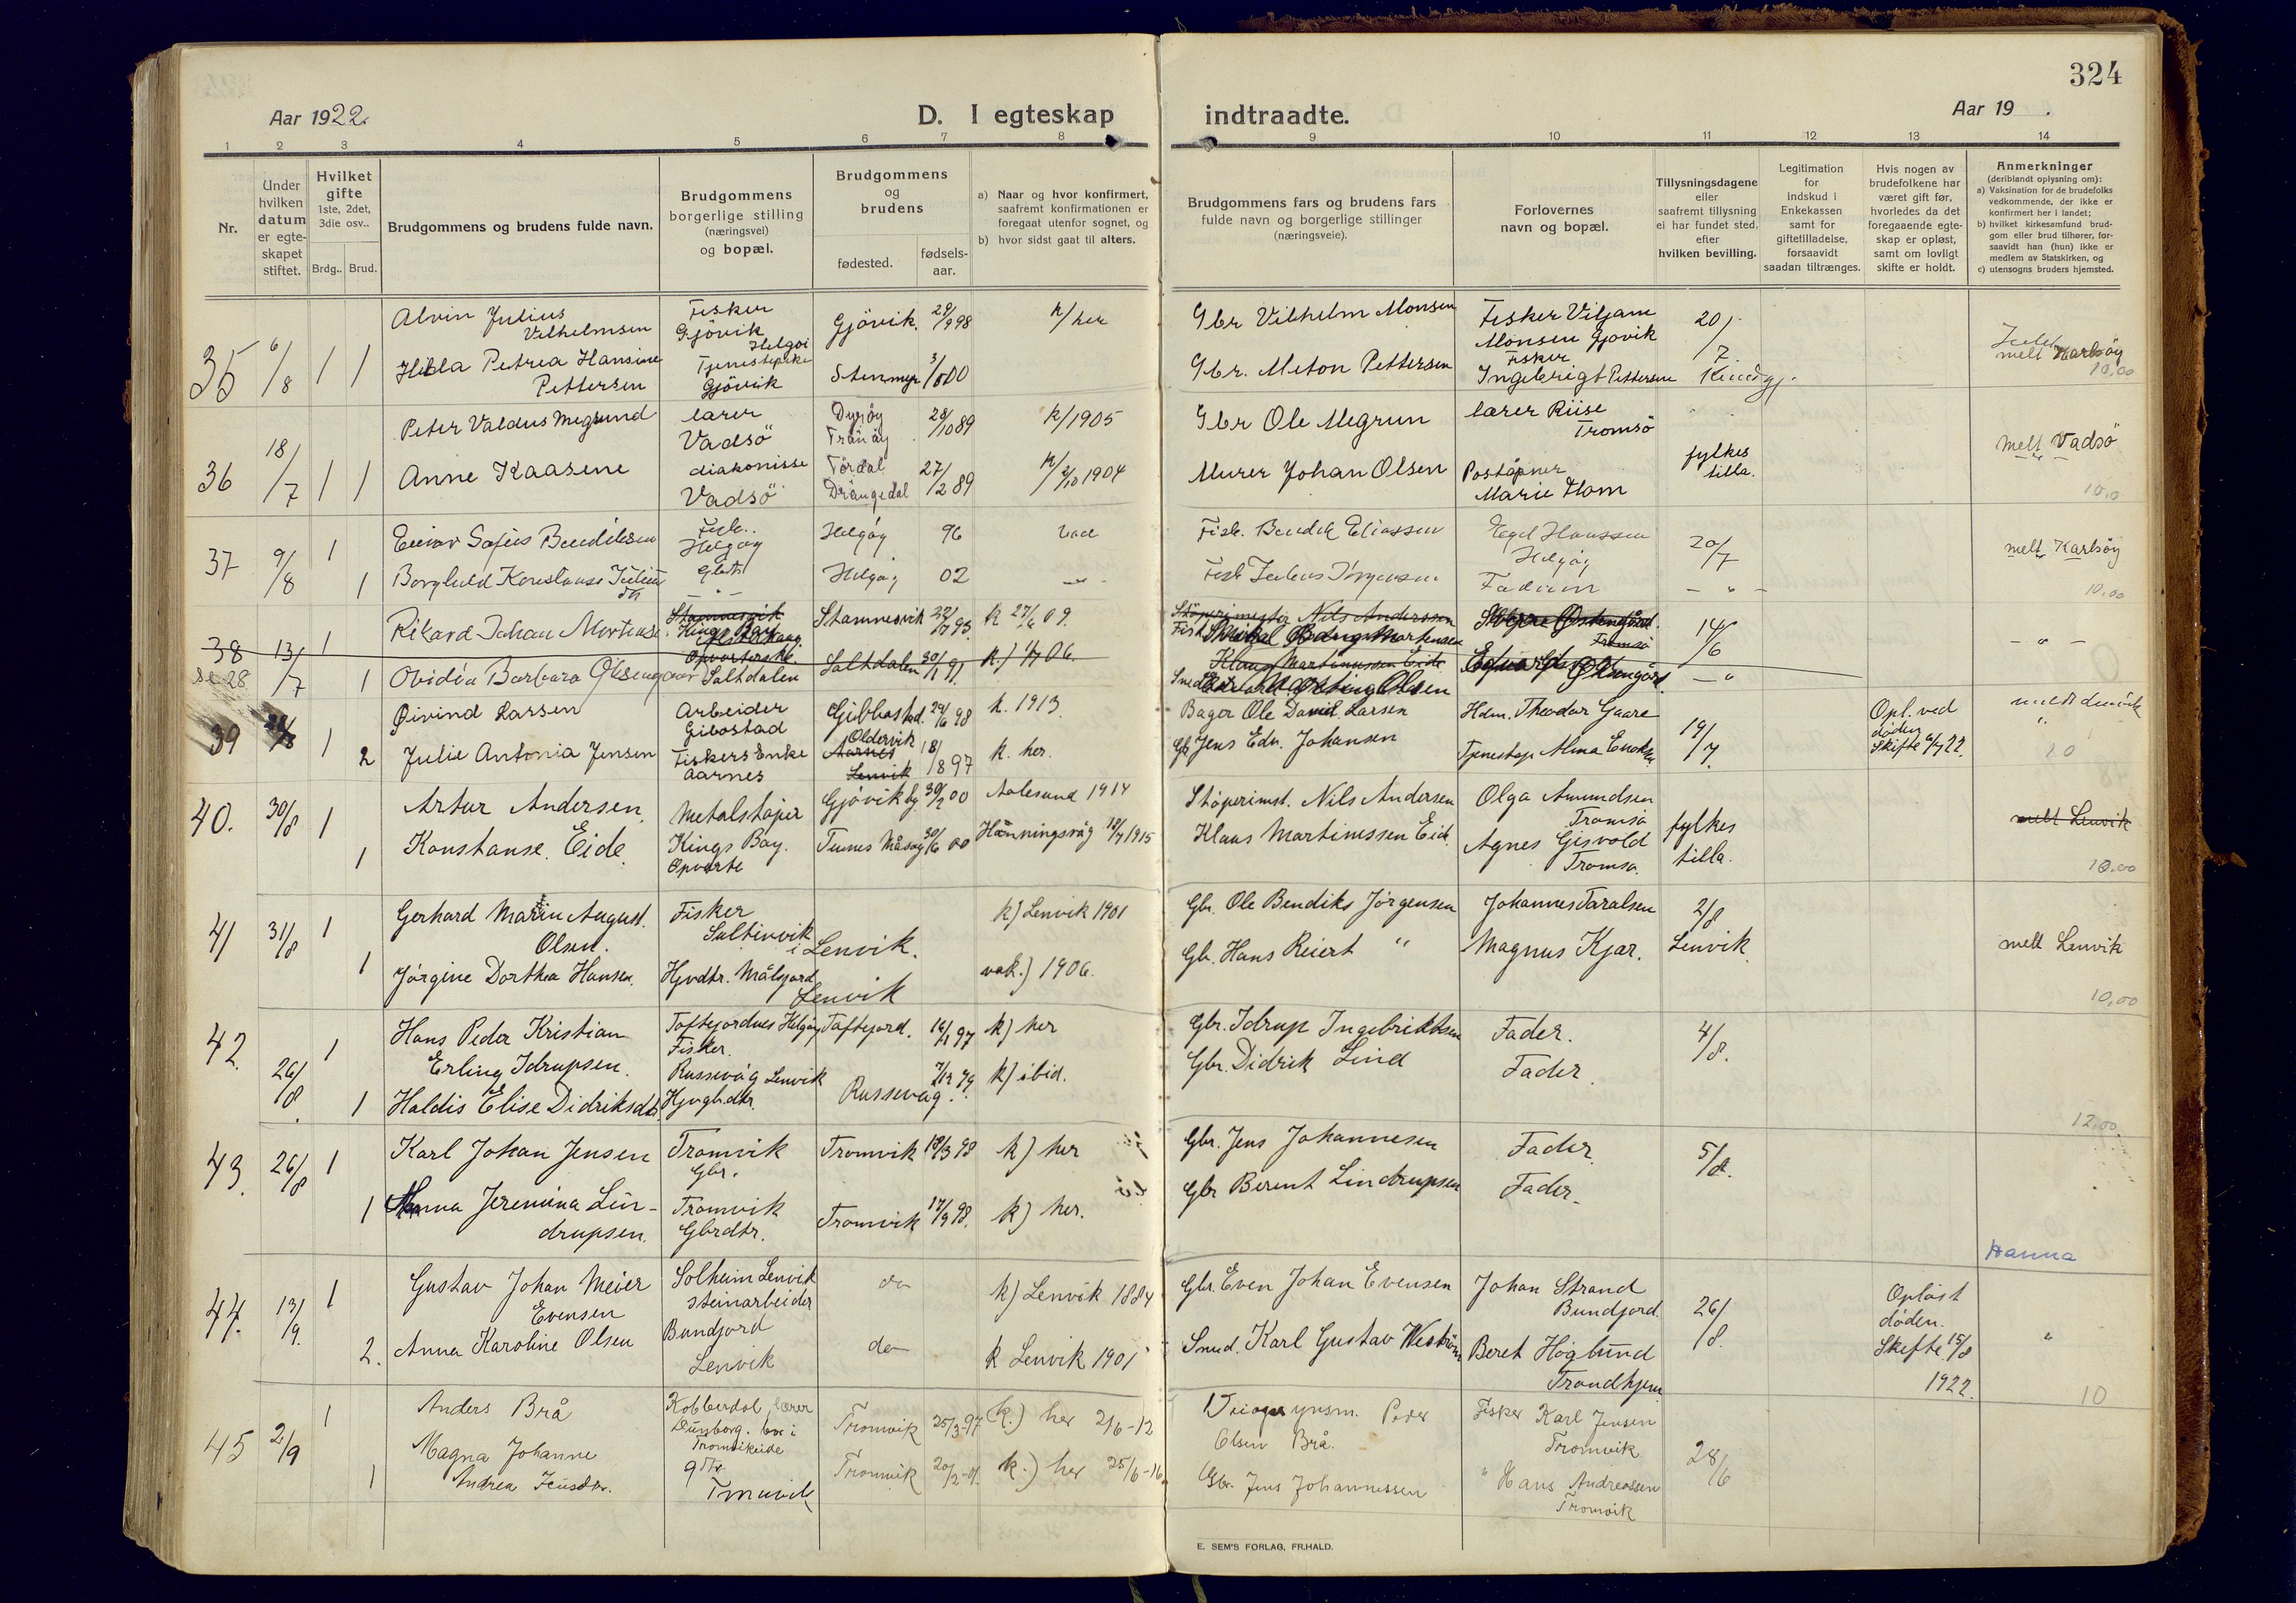 324
Aar 1922.
D. I egteskap
indtraadte.
Aar 19 .
1 2 3 4 5 6 7 8 9 10 11 12 13 14
Nr.
Under
hvilken
datum
er egte-
skapet
stiftet.
Hvilket
gifte
1ste, 2det,
3die osv..
Brdg.. Brud.
Brudgommens og brudens fulde navn.
Brudgommens
borgerlige stilling
(næringsvei)
og bopæl.
Brudgommens
og
brudens
fødested.
fødsels-
aar.
a) Naar og hvor konfirmert,
saafremt konfirmationen er
foregaat utenfor sognet, og
b) hvor sidst gaat til alters.
Brudgommens fars og brudens fars
fulde navn og borgerlige stillinger
(næringsveie).
Forlovernes
navn og bopæl.
Tillysningsdagene
eller
saafremt tillysning
ei har fundet sted,
efter
hvilken bevilling.
Legitimation
for
indskud i
Enkekassen
samt for
giftetilladelse,
forsaavidt
saadan tiltrænges.
Hvis nogen av
brudefolkene har
været gift før,
hvorledes da det
foregaaende egte-
skap er opløst,
samt om lovligt
skifte er holdt.
Anmerkninger
(deriblandt oplysning om):
a) Vaksination for de brudefolks
vedkommende, der ikke er
konfirmert her i landet;
b) hvilket kirkesamfund brud-
gom eller brud tilhører, for-
saavidt han (hun) ikke er
medlem av Statskirken, og
c) utensogns bruders hjemsted.
35 6/8 1 1
Alvin Julius
Vilhelmsen
Fisker
Gjövik
Helgøi
Gjövik. 29/9 98
k/ her
Gbr Vilhelm Monsen
Fisker Viljam
Monsen Gjøvik
20/7
Petrea Hansine
Pettersen
Gjövik
3/ 00
Gbr. Meton Pettersen
Fisker
Ingebrigt Pettersen
melt Karlsöy
10.00
36 18/7 1 1
Peter Valdus Megrund
lærer
Vadsö
Dyrøy
Tranöy
28/10 89
k/1905
Gbr Ole Megrun
lærer Riise
Tromsö
melt Vadsö
Anne Kaasene
diakonisse
Vadsö
Tördal
Drangedal
27/2 89
k/ 2/10 1904
Murer Johan Olsen
Poståpner
Marie Hom
fylkes
tilla.
10.0
37 9/8 1
Einar Sofus Bendiksen
Fisk..
Helgøy
Helgöy 96
Fisk. Bendik Eliassen
Hanssen
Helgöy
20/7
melt Karlsöy
1
Borghild Konstanse
Helgöy 02
Fisk
10.00
38 13/7
Rikard Johan Mortensen
Stamnesvik
Kings Bay
Stamnesvik 22/7 93.
k 27/6 09.
Støperimester Nils Andersson
Tromsö
14/6
se 28
1
Ovidéa Barbara
Opvarterske.
Saltdalen
Saltdalen 30/1 91
Klaus Martinussen Eide
39 1
Øivind Larsen
Arbeider
Gibostad
Gibbostad. 24/6 98
k. 1913
Bager Ole David Larsen
Hdm. Theodor Gaare
19/7
Opl. ved
døden
Skifte 6/7 22.
2
Julie Antonia Jensen
Fiskers Enke
Aarnes
Oldervik
Aarnes
Lenvik
18/8 97
k. her.
Jens Edv. Johansen
20
40. 30/8 1
Artur Andersen
Metalstøper
Gjövik by. 30/2 00
Aalesund 1914
Støperimst. Nils Andersen
Olga Amundsen
Tromsø
fylkes
tilla.
melt Lenvik
1
Konstanse. Eide
Kings Bay.
Opvarte
30/6 00
Hånningsvåg 18/7 1915
Klaus Martinussen Eid.
Agnes Gisvold
Tromsø.
10.00
41 31/8 1
Gerhard Martin August.
Olsen.
Fisker
Saltinvik
i Lenvik.
k) Lenvik 1901
Gbr. Ole Bendiks Jörgensen
Johannes Taralsen
2/8
Lenvik
melt Lenvik
1
Jörgine Dorthea Hansen.
Hjvdtr. Målsjord
Lenvik
vok.) 1906.
Gb. Hans Reiert "
Magnus Kjær.
10,00
42. 26/8. 1
Hans Peder Kristian
Erling Idrupsen.
Toftefjordnes Helgøy
Fisker.
Toftefjord. 16/1 97
k) her
Gbr. Idrup Ingebriktsen
Fader.
4/8.
1
Haldis Elise Didriksdtr
Russevåg Lenvik
Hjvgb.dtr.
Russevåg. 7/12 99
k) ibid.
Gbr. Didrik Lind
Fader.
12.00.
43. 26/8 1
Karl Johan Jensen
Tromvik
Gbr.
Tromvik 18/3 98
k) her
Gbr. Jens Johannesen
Fader.
5/8.
1
Jeremina Lin-
drupsen.
Tromvik
Gbrdtr.
Tromvik 17/9 98.
k) her.
Gbr Berent Lindrupsen
Fader.
Hanna
44. 13/9. 1
Gustav Johan Meier
Evensen
Solheim Lenvik
steinarbeider
do
k) Lenvik 1884
Gbr. Even Johan Evensen
Johan Strand
Bundjord.
26/8.
Opløst
døden.
Skifte 15/8
1922.
2.
Anna Karoline Olsen
Bundjord
Lenvik
do
k Lenvik 1901
Smed. Karl Gustav Weström
Beret Höglund
Trondhjem
"
10
45 2/9 1
Anders Brå
Kobberdal, lærer
Tromvik 25/3-97
k.) her 2/6-12
Peder
Olsen Brå.
Fisker Karl Jensen
Tromvik
28/6
1
Magna Johanne
Andrea Jensdtr.
Tromvik
Tromvik 20/2-01.
k.) her 25/6-16
Gbr. Jens Johannessen
" Hans Andreassen
Tromvik
E. SEM'S FORLAG, FR.HALD.